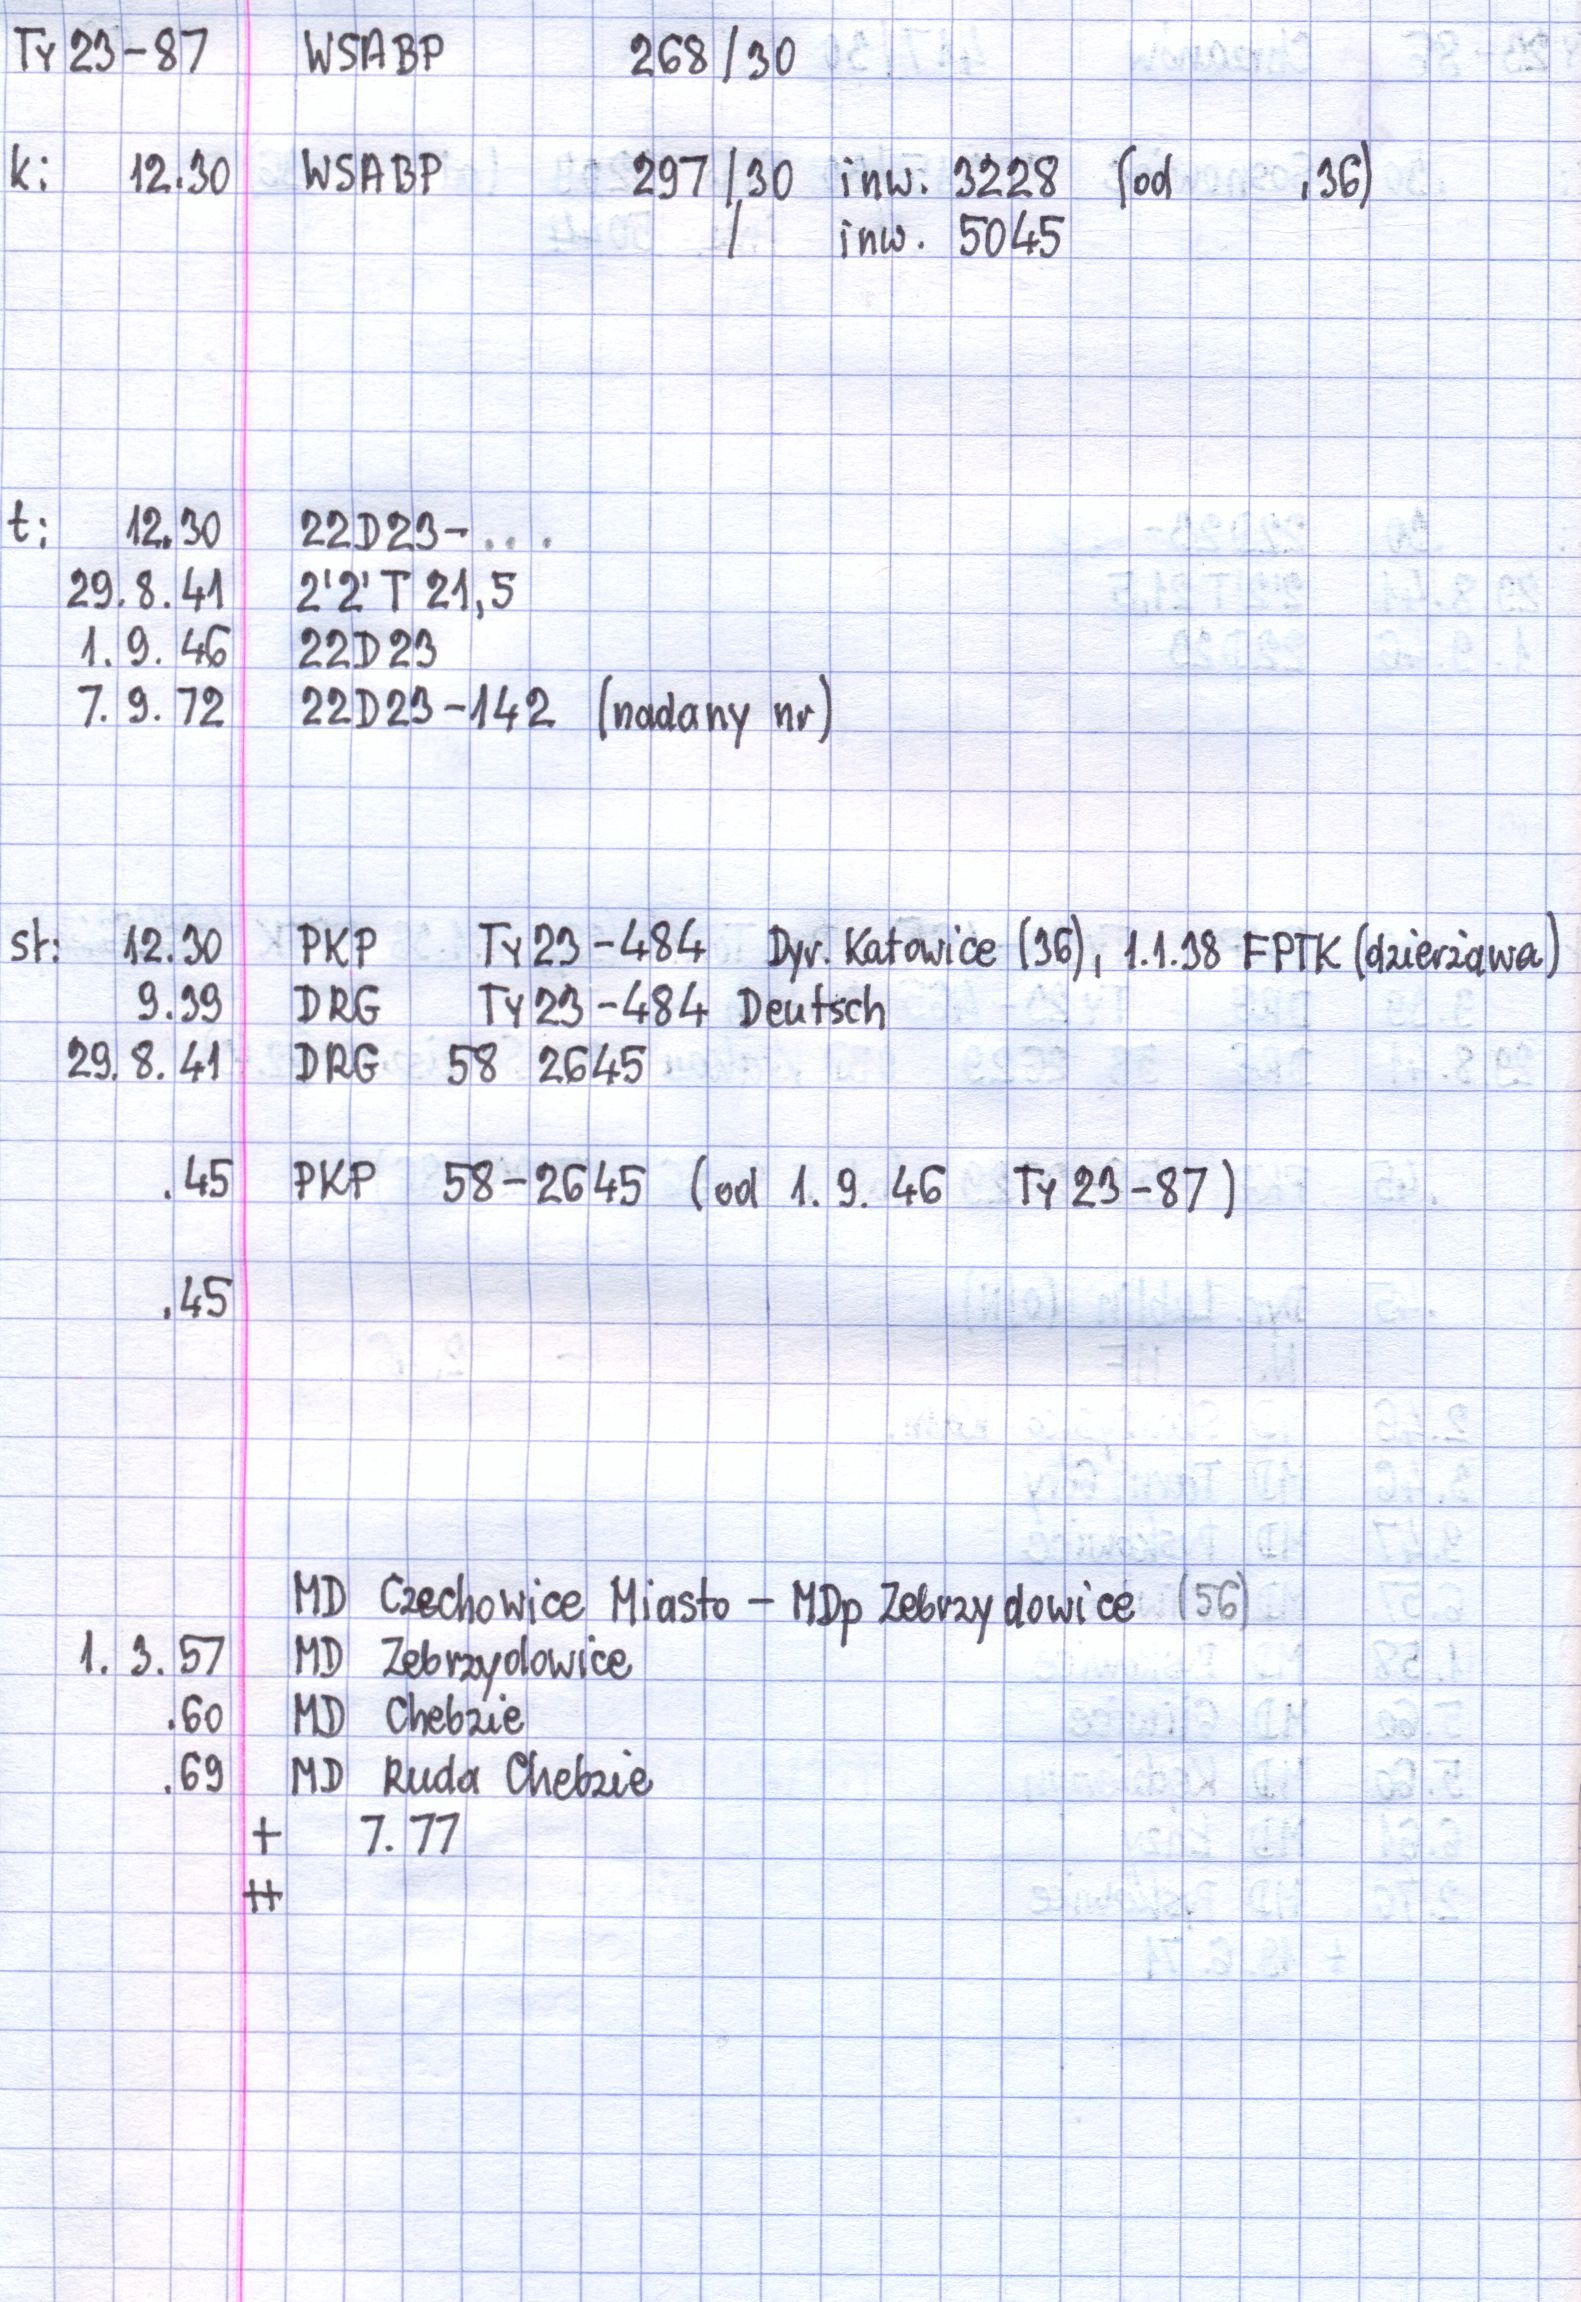 Ty 23-87 WSABP 268/30
k: 12.30 WSABP 297/30 inw. 3228 (od .36)
/ inw. 5045
t: 12.30 22D23-...
29.8.41 2'2' T 21,5
1.9.46 22D23
7.9.72 22D23-142 (nadany nr)
st: 12.30 PKP Ty 23-484 Dyr. Katowice (36), 1.1.38 FPTK (dzierżawa)
9.39 DRG Ty 23-484 Deutsch
29.8.41 DRG 58 2645
.45 PKP 58-2645 (od 1.9.46 Ty 23-87)
.45
MD Czechowice Miasto - MDp Zebrzydowice (56)
1.3.57 MD Zebrzydowice
.60 MD Chebzie
.69 MD Ruda Chebzie
+ 7.77
++